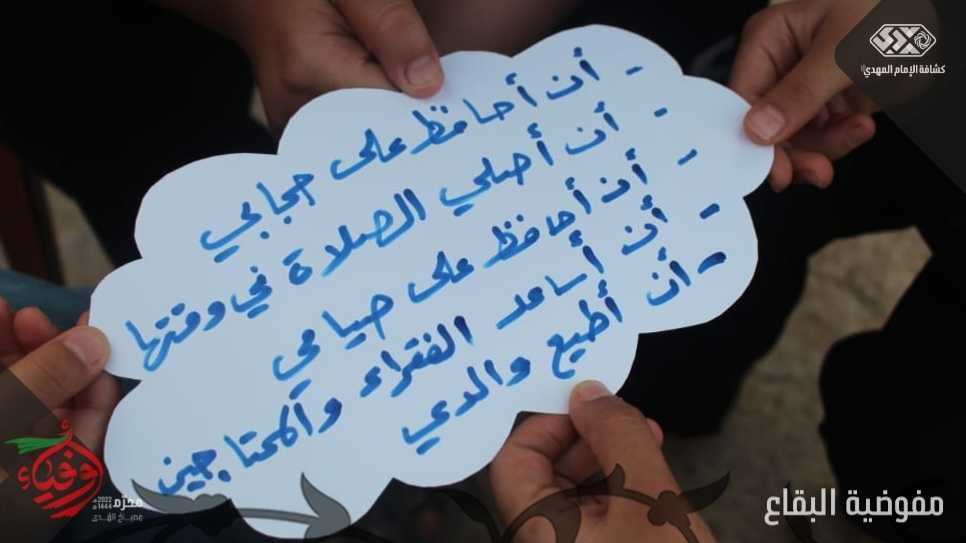 كشافة الإمام المهدي
- أن أحافظ على حجابي
- أن أصلي الصلاة في وقتها
- أن أحافظ على صيامي
- أن أساعد الفقراء والمحتاجين
- أن أطيع والدي
أوفياء
محرّم
2022
1444
مفوضية البقاع